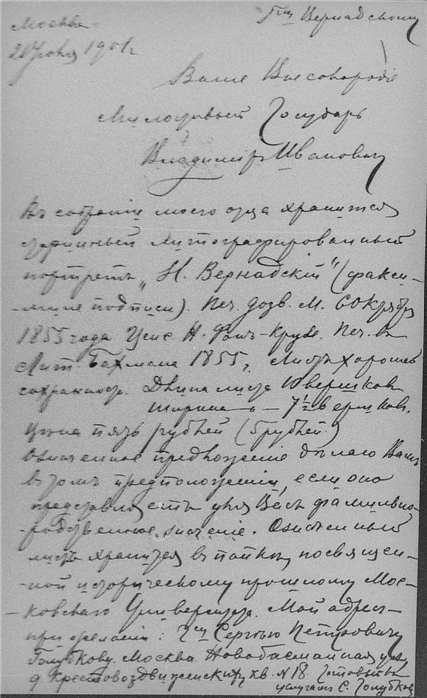 Москва
20 Июня 1901 г.
Г-ну Вернадскому
Ваше Высокородіе
Милостивый Государь
Владиміръ Ивановичъ
Въ собраніи моего отца хранится
старинный литографированный
портретъ „И. Вернадскій“ (факси-
миле подписи). Печ. дозв. М. Октября
1855 года Ценс. Н. Фонъ-Крузе. Печ. въ
Лит. Бахмана 1855 г. Листъ хорошо
сохранился. Длина листа 10 вершков
ширина — " — 7½ вершков.
цѣна пять рублей (5 рублей)
Означенное предложеніе дѣлаю Вамъ
въ томъ предположеніи, если оно
представляетъ для Васъ фамильно-
родственное значеніе. Означенный
листъ хранится въ папкѣ, посвящен-
ной историческому прошлому Мос-
ковскаго Университ. Мой адресъ
при желаніи: Г-ну Сергѣю Петровичу
Голубкову. Москва. Новобасманная ул.
д. Крестовоздвиженских кв. № 18 Готовый къ
услугамъ С. Голубков